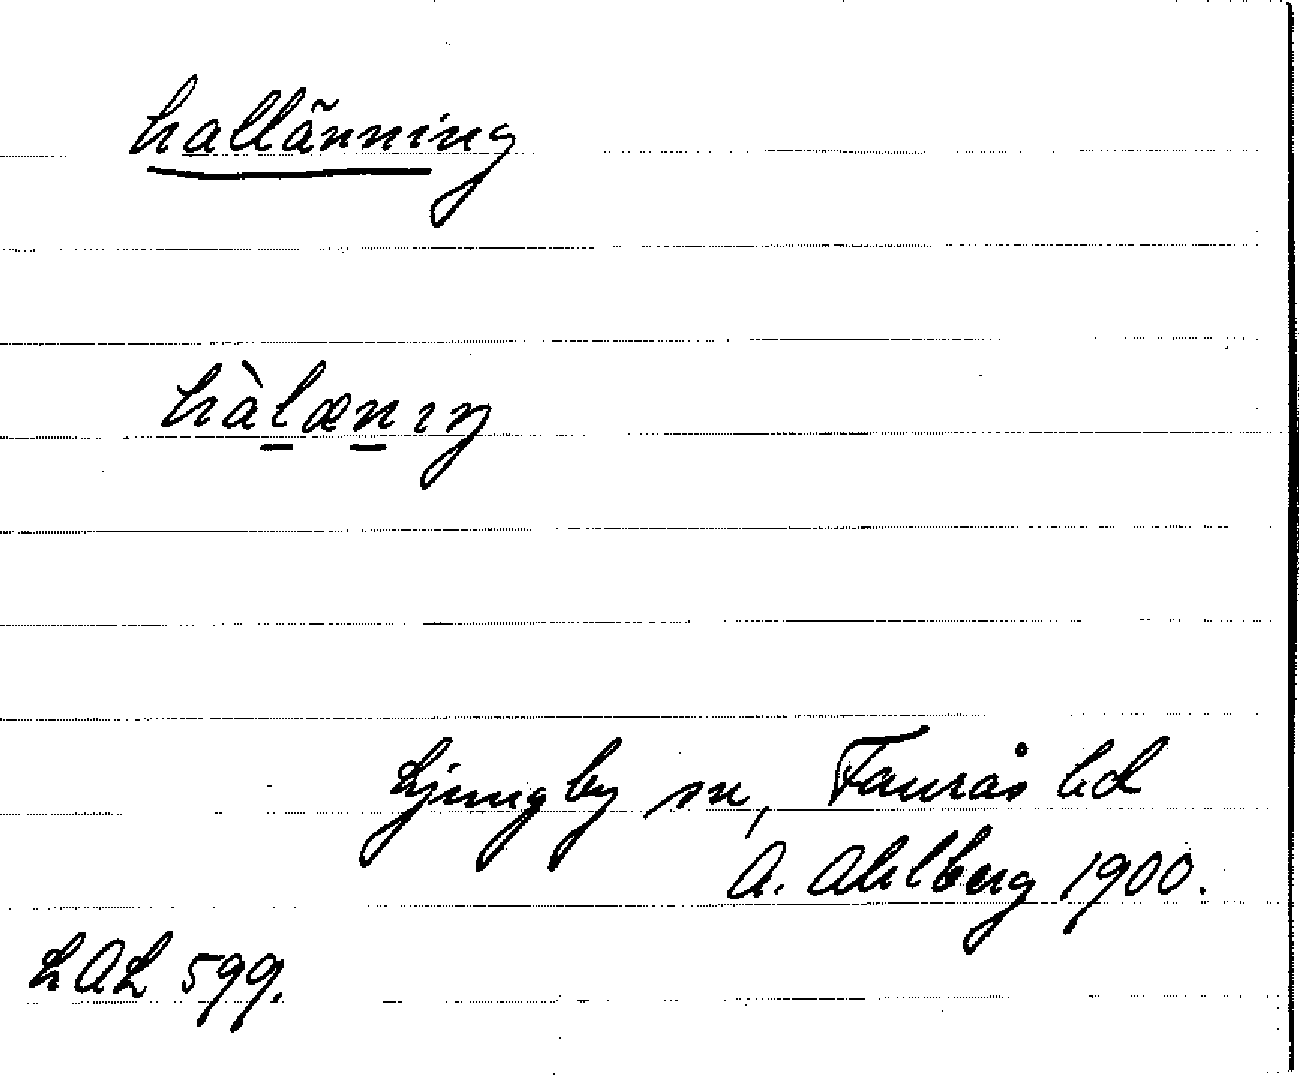 hallänning
hàlænıŋ
Ljungby sn, Faurås hd
A. Ahlberg 1900.
LAL 599.